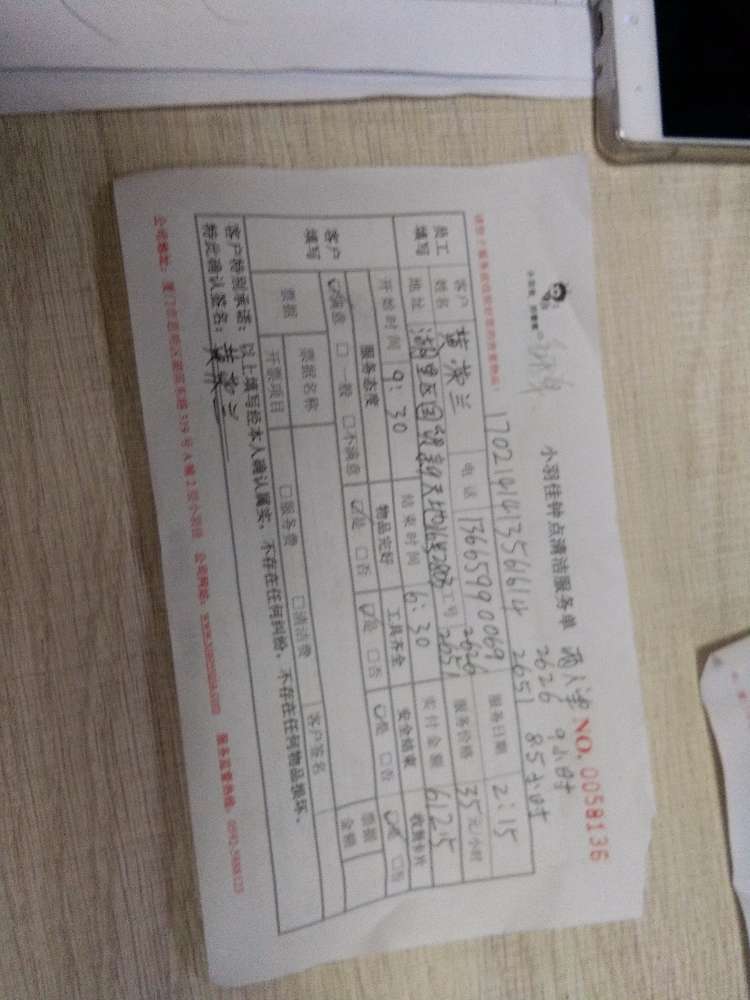 小羽佳钟点清洁服务单 两人单 NO. 0058136
2626 9小时
170214141356614 2651 8.5小时
客户姓名 黄荣兰 电话 13665990069 服务日期 2:15
员工填写
地址 湖里区国贸新天地 工号 2626 2651 服务价格 35元/小时
开始时间 9:30 结束时间 6:30 实付金额 612.5
客户填写
服务态度 物品完好 工具齐全 安全结束
满意 □一般 □不满意 是 □否 是 □否 是 □否 是 □否
票据 票据名称 客户签名 票据金额
开票项目 □服务费 □清洁费
客户特别承诺：以上填写经本人确认属实，不存在任何纠纷，不存在任何物品损坏、
特此确认签名：黄荣兰
公司网址：www.xiaoyujia.com 服务监督热线：0592-5888123